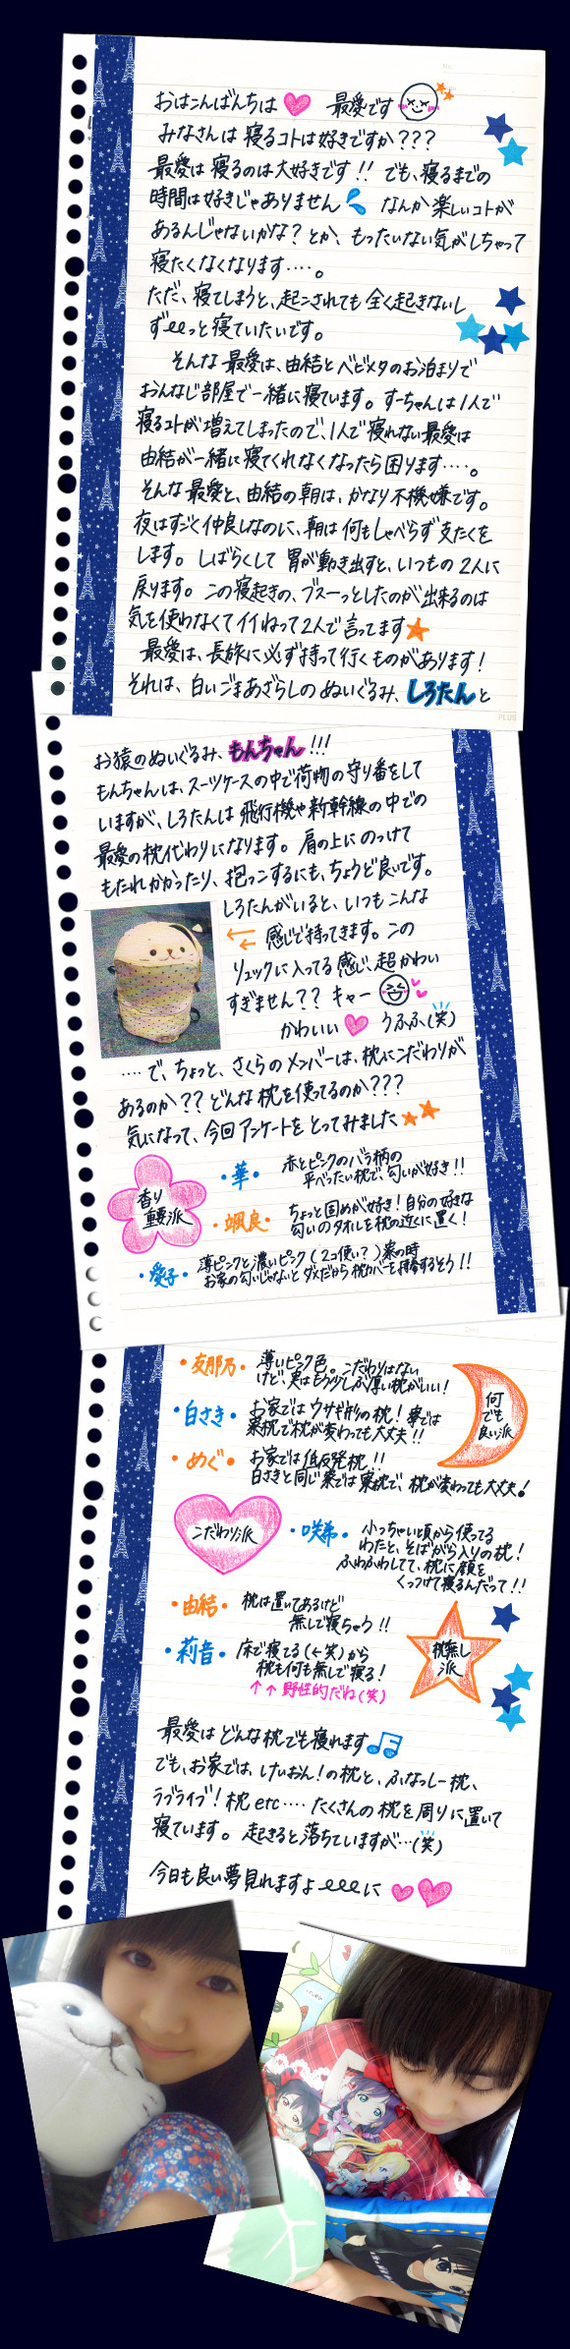 おはこんばんちは 最愛です
みなさんは寝るコトは好きですか???
最愛は寝るのは大好きです!! でも、寝るまでの
時間は好きじゃありません なんか楽しいコトが
あるんじゃないかな? とか、もったいない気がしちゃって
寝たくなくなります‥‥。
ただ、寝てしまうと、起こされても全く起きないし
ずーっと寝ていたいです。
そんな最愛は、由結とベビメタのお泊まりで
おんなじ部屋で一緒に寝ています。すーちゃんは1人で
寝るコトが増えてしまったので、1人で寝れない最愛は
由結が一緒に寝てくれなくなったら困ります‥‥。
そんな最愛と、由結の朝は、かなり不機嫌です。
夜はすごく仲良しなのに、朝は何もしゃべらず支たくを
します。しばらくして胃が動き出すと、いつもの2人に
戻ります。この寝起きの、ブスーっとしたのが出来るのは
気を使わなくてイイねって2人で言ってます
最愛は、長旅に必ず持って行くものがあります!
それは、白いごまあざらしのぬいぐるみ、しろたんと
PLUS
お猿のぬいぐるみ、もんちゃん!!!
もんちゃんは、スーツケースの中で荷物の守り番をして
いますが、しろたんは飛行機や新幹線の中での
最愛の枕代わりになります。肩の上にのっけて
もたれかかったり、抱っこするにも、ちょうど良いです。
しろたんがいると、いつもこんな
← 感じで持ってきます。この
←
リュックに入ってる感じ、超かわい
すぎません?? キャー
かわいい うふふ(笑)
‥‥で、ちょっと、さくらのメンバーは、枕にこだわりが
あるのか?? どんな枕を使ってるのか???
気になって、今回アンケートをとってみました
香り重要派
・華・ 赤とピンクのバラ柄の
平べったい枕で、匂いが好き!!
・颯良・ ちょっと固めが好き! 自分の好きな
匂いのタオルを枕の近くに置く!
・愛子・ 薄ピンクと濃いピンク(2コ使い?)寮の時
お家の匂いじゃないとダメだから枕カバーを持参するそう!!
・友那乃・ 薄いピンク色。こだわりはない
けど、実はもう少しふ厚い枕がいい!
何でも良い派
・白さき・ お家ではウサギ形の枕! 寮では
寮枕で枕が変わっても大丈夫!!
・めぐ・ お家では低反発枕!!
白さきと同じ寮では寮枕で、枕が変わっても大丈夫!
こだわり派
・咲希・ 小っちゃい頃から使ってる
わたと、そばがら入りの枕!
ふわふわしてて、枕に顔を
くっつけて寝るんだって!!
・由結・ 枕は置いてあるけど
無しで寝ちゃう!!
・莉音・ 床で寝てる(←笑)から
枕も何も無しで寝る!
↑↑野性的だね(笑)
枕無し派
最愛はどんな枕でも寝れます
でも、お家では、けいおん!の枕と、ふなっしー枕、
ラブライブ!枕etc‥‥たくさんの枕を周りに置いて
寝ています。起きると落ちていますが…(笑)
今日も良い夢見れますよーに
PLUS